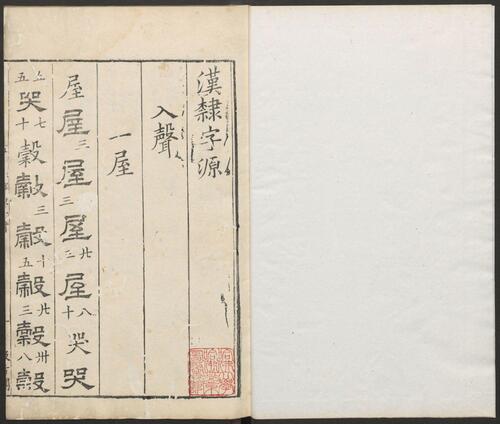 漢隸字源
入聲
一屋
屋屋三屋三屋廿二屋八十哭哭
五哭七十穀穀三穀十五穀廿三穀卅八穀